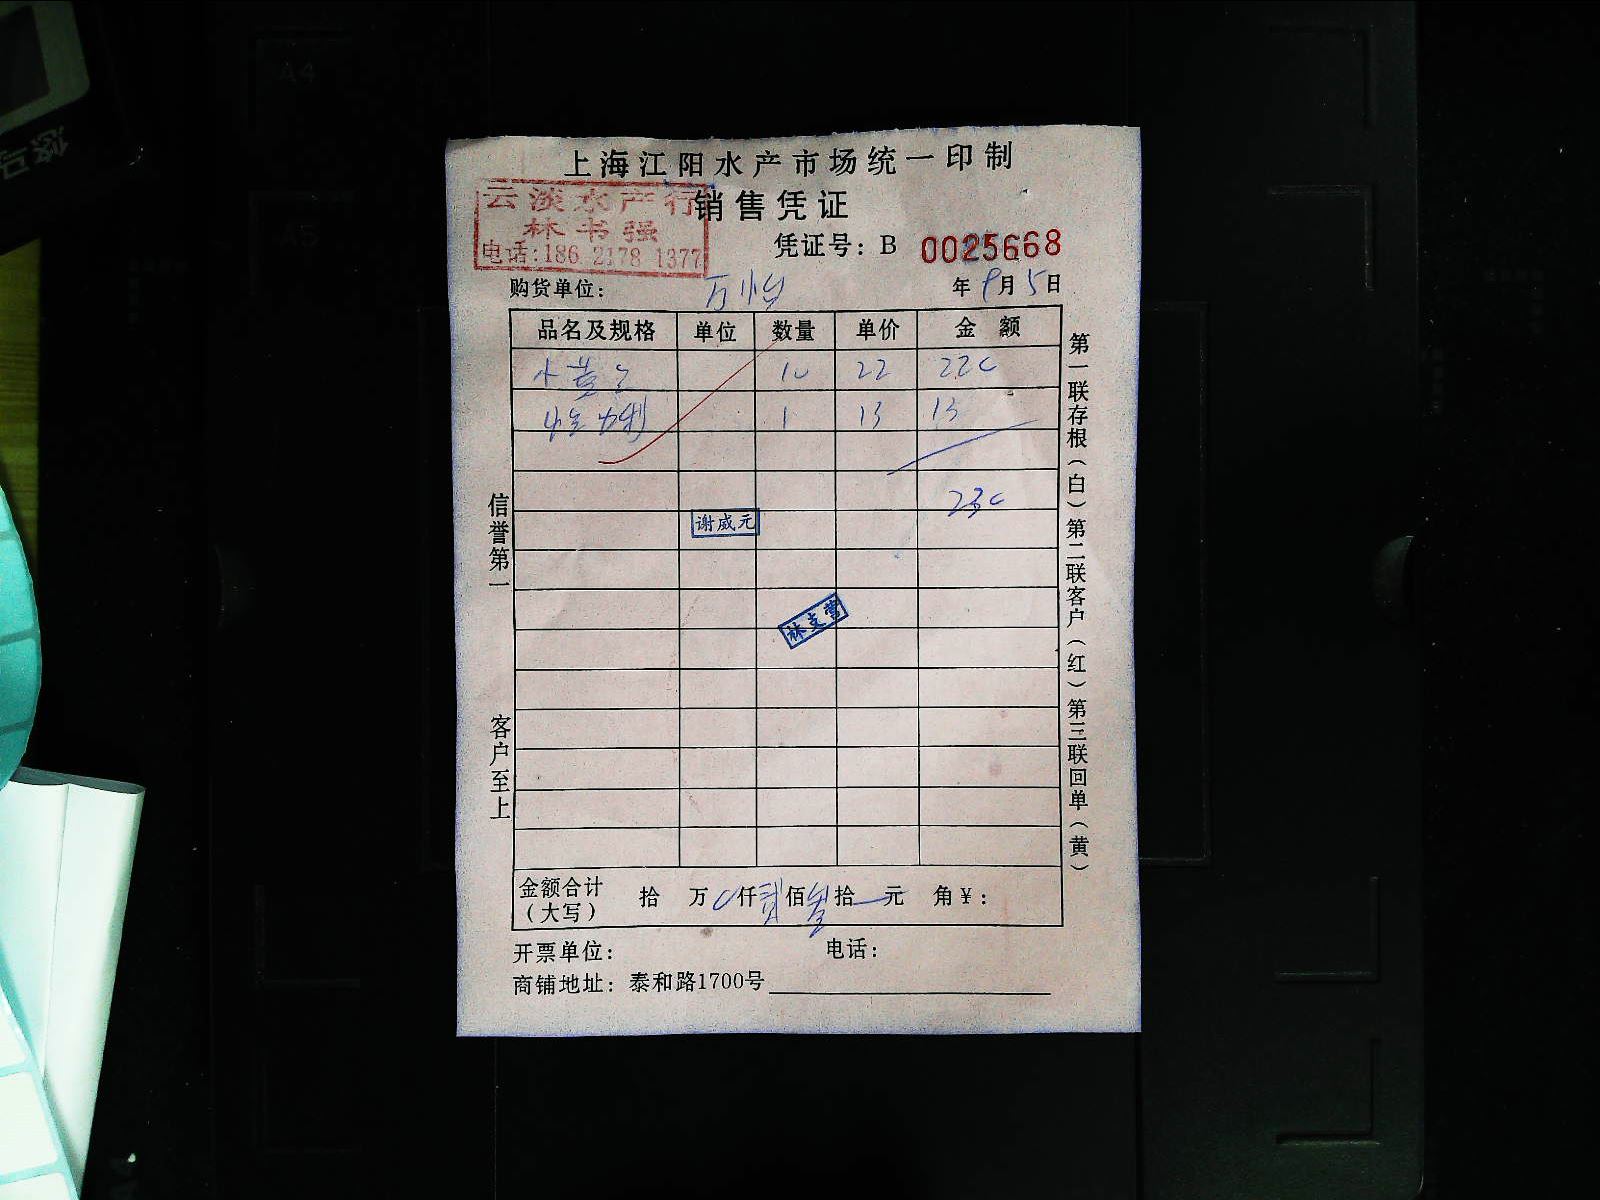 A4
A5
悠马
上海江阳水产市场统一印制
云淡水产行
林书强
电话:186 2178 1377
销售凭证
凭证号: B 0025668
购货单位: 万怡 年 9月5日
品名及规格 单位 数量 单价 金额
小黄 10 22 220
1 13 13
230
谢威元
林支营
信誉第一
客户至上
第一联存根(白)第二联客户(红)第三联回单(黄)
金额合计(大写) 拾 万 0仟贰佰叁拾 元 角¥:
开票单位: 电话:
商铺地址: 泰和路1700号